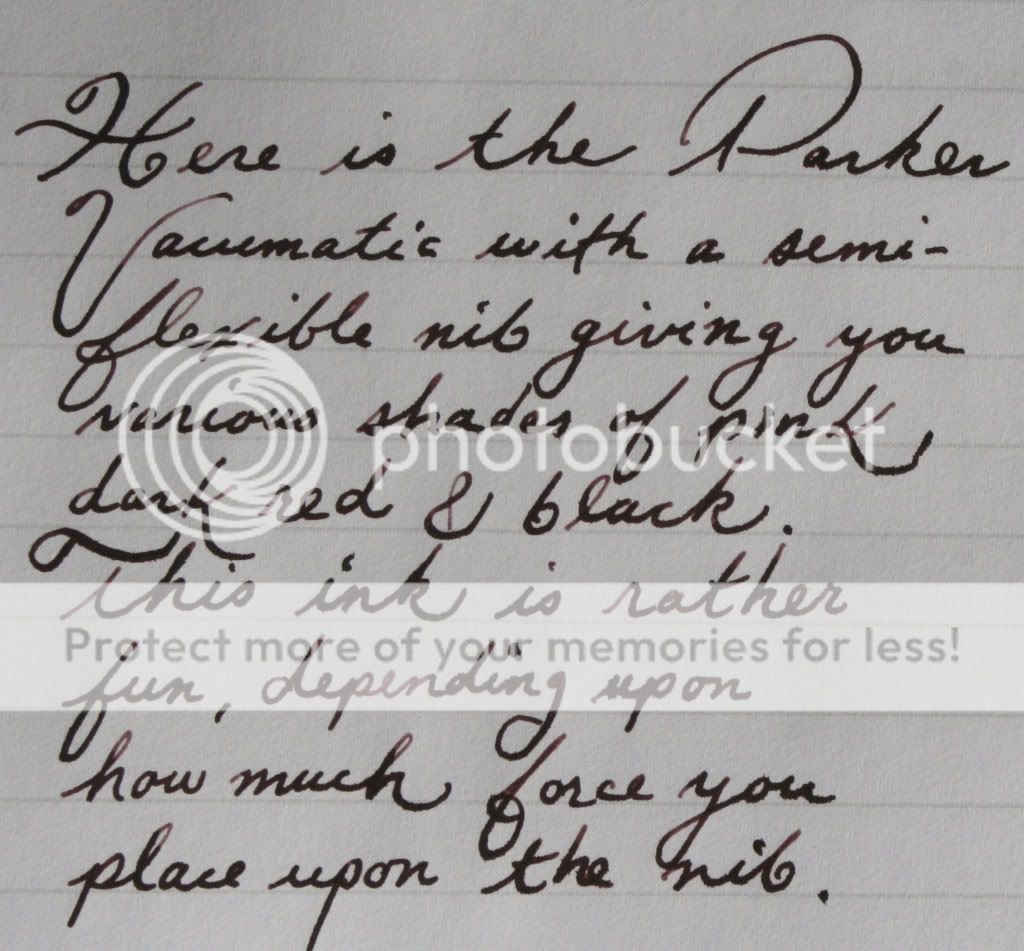 Here is the Parker
Vacumatic with a semi-
flexible nib giving you
various shades of pink,
photobucket
dark red & black.
This ink is rather
Protect more of your memories for less!
fun, depending upon
how much force you
place upon the nib.